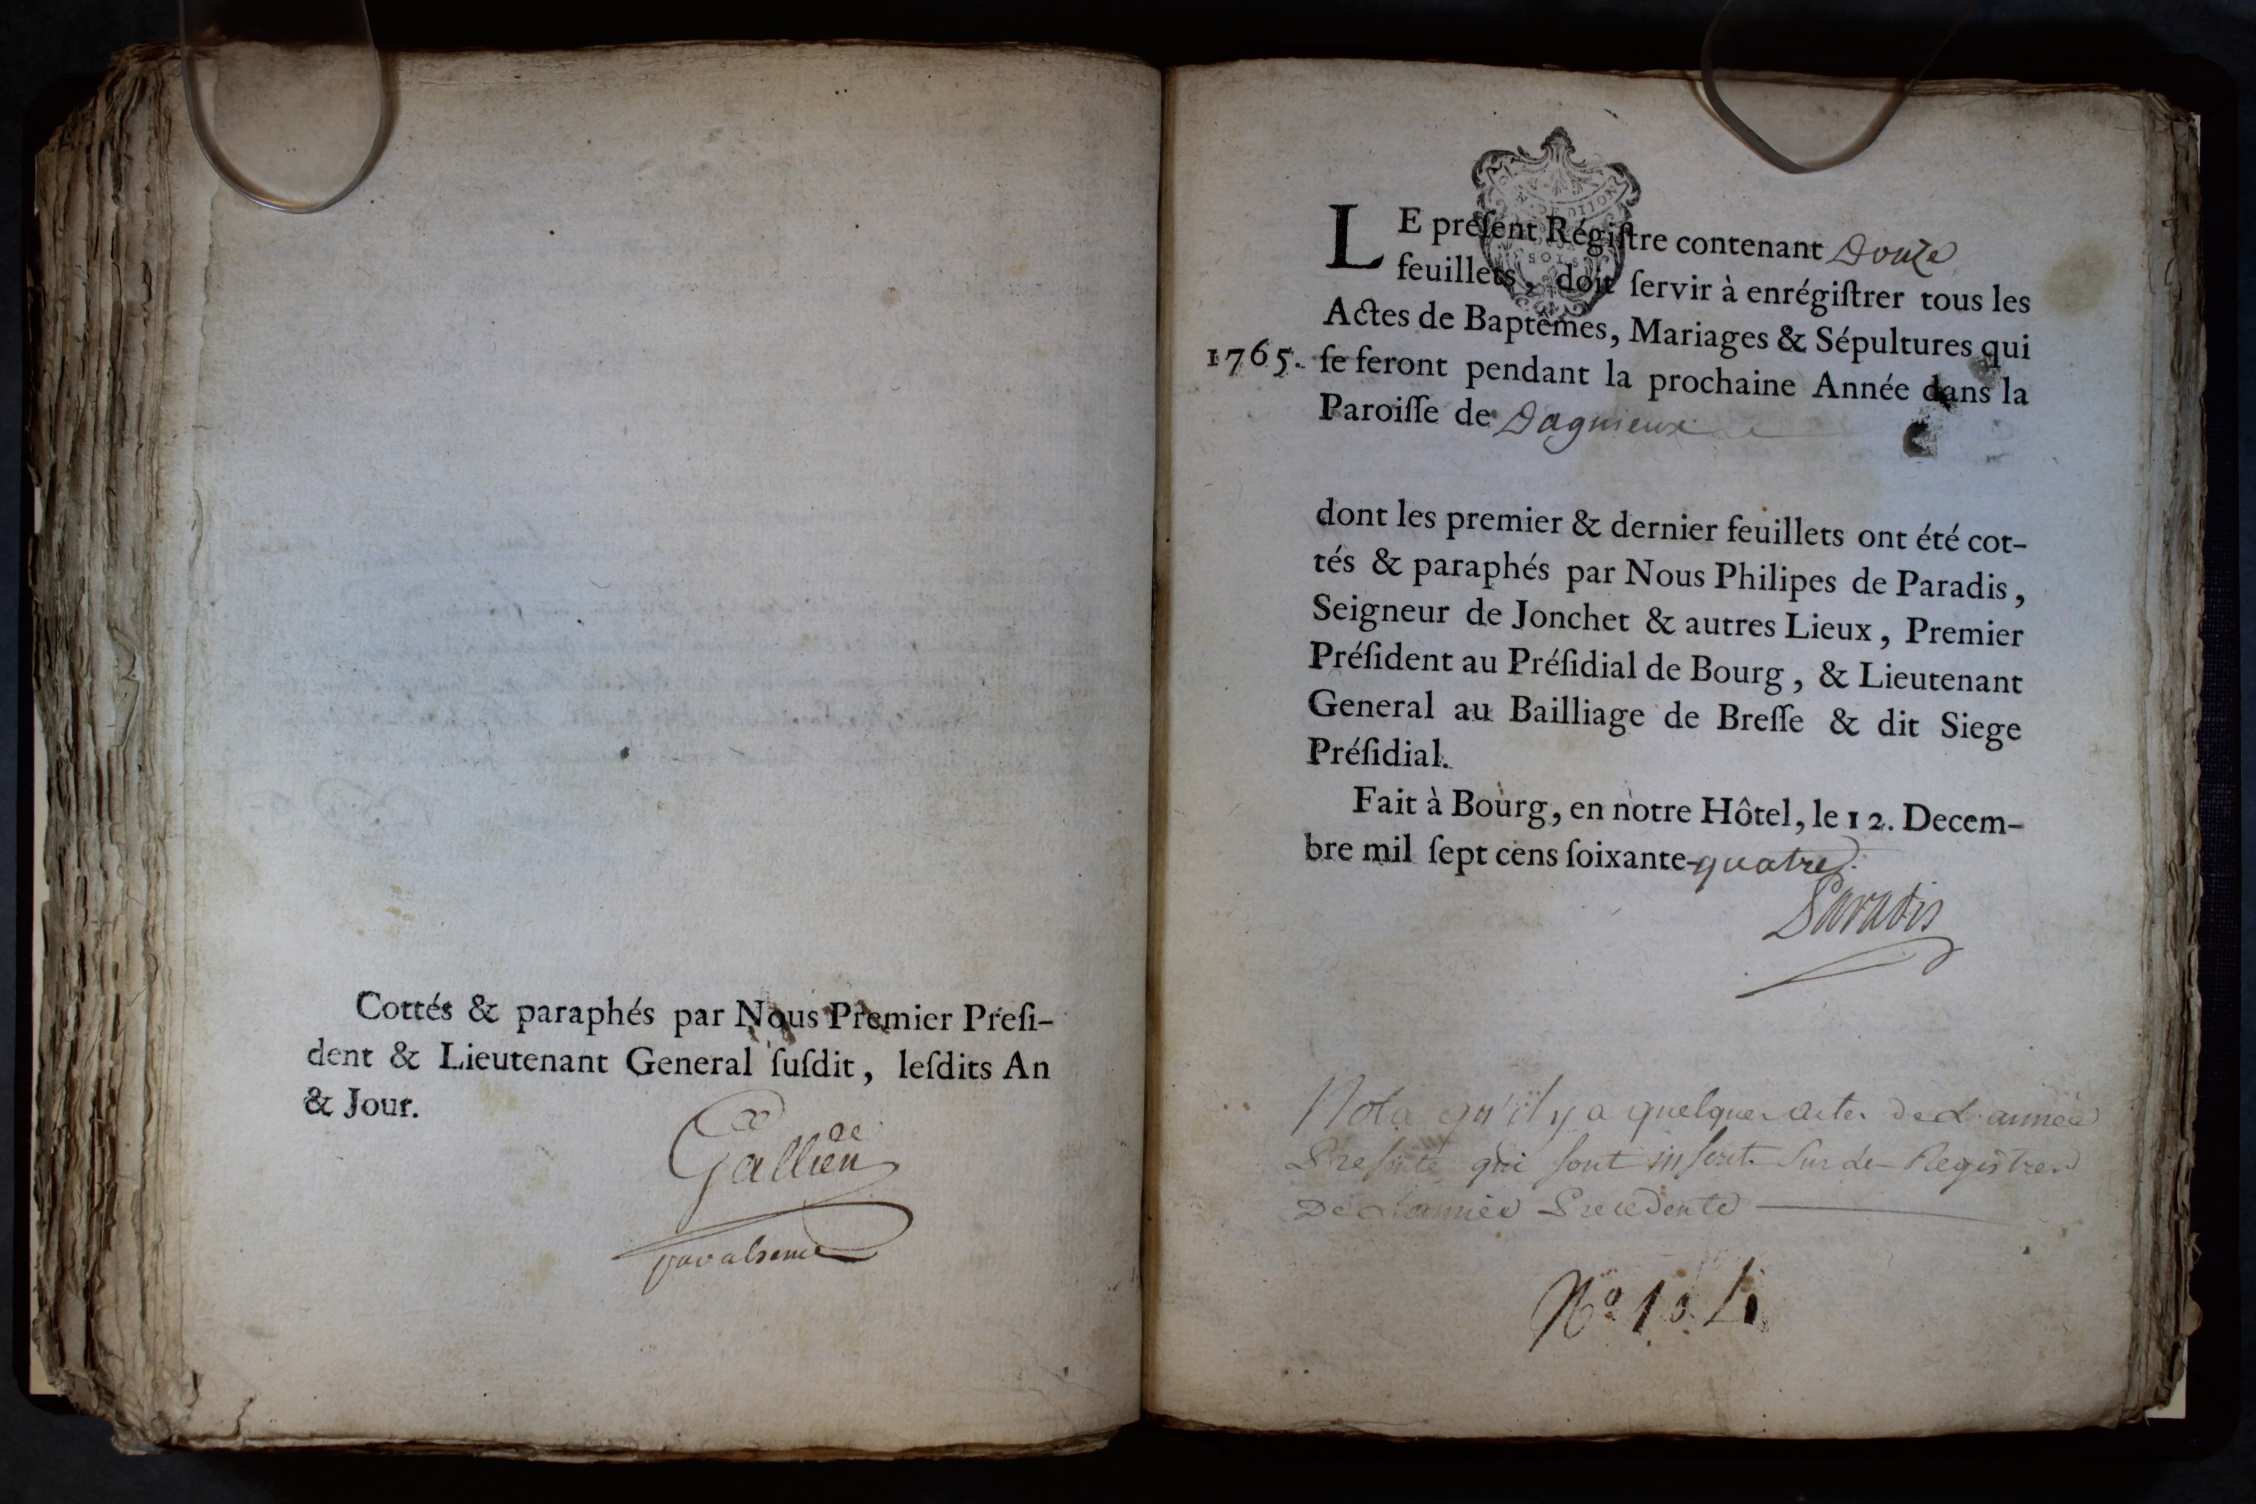 Cottés & paraphés par Nous Premier Preſi-
dent & Lieutenant General ſuſdit, leſdits An
& Jour.
Gallien
LE préſent Régiſtre contenant Douze
feuillets, doit ſervir à enrégiſtrer tous les
Actes de Baptêmes, Mariages & Sépultures qui
1765. ſe feront pendant la prochaine Année dans la
Paroiſſe de Dagnieux
dont les premier & dernier feuillets ont été cot-
tés & paraphés par Nous Philipes de Paradis,
Seigneur de Jonchet & autres Lieux, Premier
Préſident au Préſidial de Bourg, & Lieutenant
General au Bailliage de Breſſe & dit Siege
Préſidial.
Fait à Bourg, en notre Hôtel, le 12. Decem-
bre mil ſept cens ſoixante-quatre.
Paradis
Nota qu'il y a quelques actes de L'année
Presente qui sont inserit sur Le Registre
De L'année Precedente